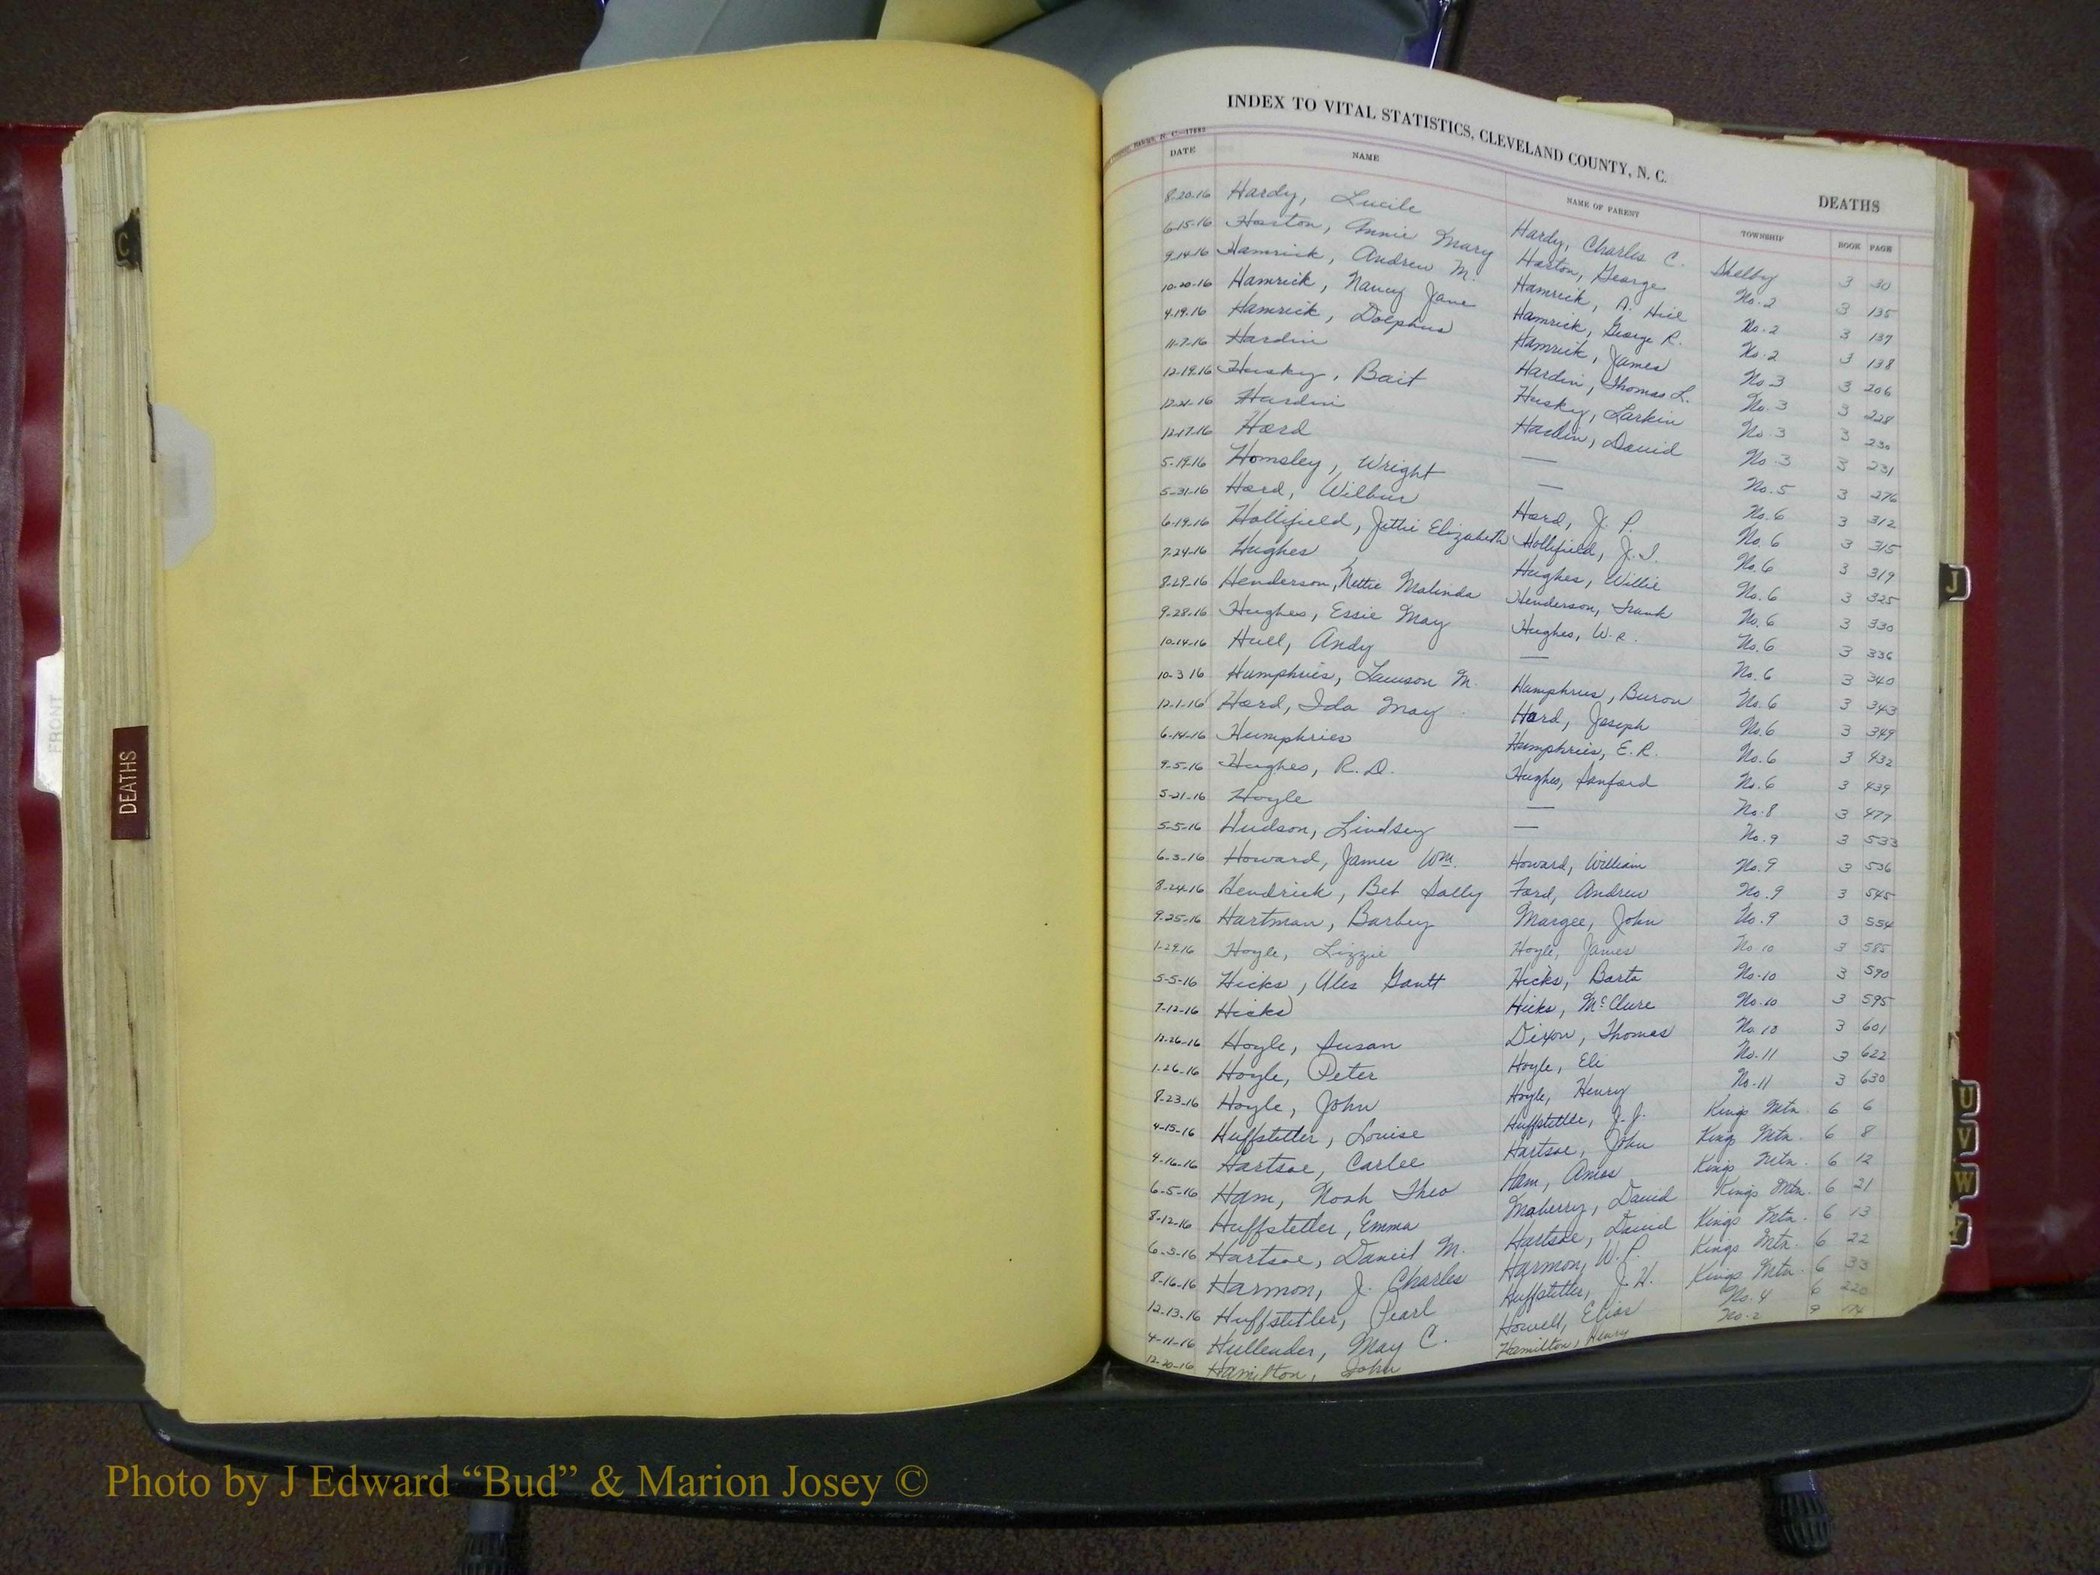 INDEX TO VITAL STATISTICS, CLEVELAND COUNTY, N. C.
DEATHS
DATE NAME NAME OF PARENT TOWNSHIP BOOK PAGE
8-20-16 Hardy, Lucile Hardy, Charles C. Shelby 3 30
6-15-16 Harton, Annie Mary Harton, George No. 2 3 135
9-14-16 Hamrick, Andrew M. Hamrick, A. Hill No. 2 3 137
10-20-16 Hamrick, Nancy Jane Hamrick, George R. No. 2 3 138
4-19-16 Hamrick, Dolphus Hamrick, James No. 3 3 206
11-7-16 Hardin Hardin, Thomas L. No. 3 3 228
12-19-16 Husky, Bait Husky, Larkin No. 3 3 230
12-21-16 Hardin Hardin, David No. 3 3 231
12-17-16 Hord — No. 5 3 276
5-19-16 Homsley, Wright — No. 6 3 312
5-31-16 Hord, Wilbur Hord, J. P. No. 6 3 315
6-19-16 Hollifield, Jettie Elizabeth Hollifield, J. I. No. 6 3 319
7-24-16 Hughes Hughes, Willie No. 6 3 325
8-29-16 Henderson, Nettie Malinda Henderson, Frank No. 6 3 330
9-28-16 Hughes, Essie May Hughes, W. R. No. 6 3 336
10-14-16 Hull, Andy — No. 6 3 340
10-3 16 Humphries, Lawson M. Humphries, Buron No. 6 3 343
12-1-16 Hord, Ida May Hord, Joseph No. 6 3 349
6-14-16 Humphries Humphries, E. R. No. 6 3 432
9-5-16 Hughes, R. D. Hughes, Sanford No. 6 3 439
5-21-16 Hoyle — No. 8 3 477
5-5-16 Hudson, Lindsey — No. 9 3 533
6-3-16 Howard, James Wm. Howard, William No. 9 3 536
8-24-16 Hendrick, Bet Sally Ford, Andrew No. 9 3 545
9-25-16 Hartman, Barbey Margee, John No. 9 3 554
1-29-16 Hoyle, Lizzie Hoyle, James No 10 3 585
5-5-16 Hicks, Ules Gantt Hicks, Barto No. 10 3 590
7-12-16 Hicks Hicks, McClure No. 10 3 595
12-26-16 Hoyle, Susan Dixon, Thomas No. 10 3 601
1-26-16 Hoyle, Peter Hoyle, Eli No. 11 3 622
8-23-16 Hoyle, John Hoyle, Henry No. 11 3 630
4-15-16 Huffstetler, Louise Huffstetler, J. J. Kings Mtn. 6 6
4-16-16 Hartsoe, Carlee Hartsoe, John Kings Mtn. 6 8
6-5-16 Ham, Noah Theo Ham, Amos Kings Mtn. 6 12
8-12-16 Huffstetler, Emma Maberry, David Kings Mtn. 6 21
6-5-16 Hartsoe, Daniel M. Hartsoe, David Kings Mtn. 6 13
8-16-16 Harmon, J. Charles Harmon, W. P. Kings Mtn. 6 22
12-13-16 Huffstetler, Pearl Huffstetler, J. H. Kings Mtn. 6 33
4-11-16 Hullender, May C. Howell, Elias No. 4 6 220
12-20-16 Hamilton, John Hamilton, Henry No. 2 9 174
C
FRONT
DEATHS
J
U
V
W
Photo by J Edward “Bud” & Marion Josey ©